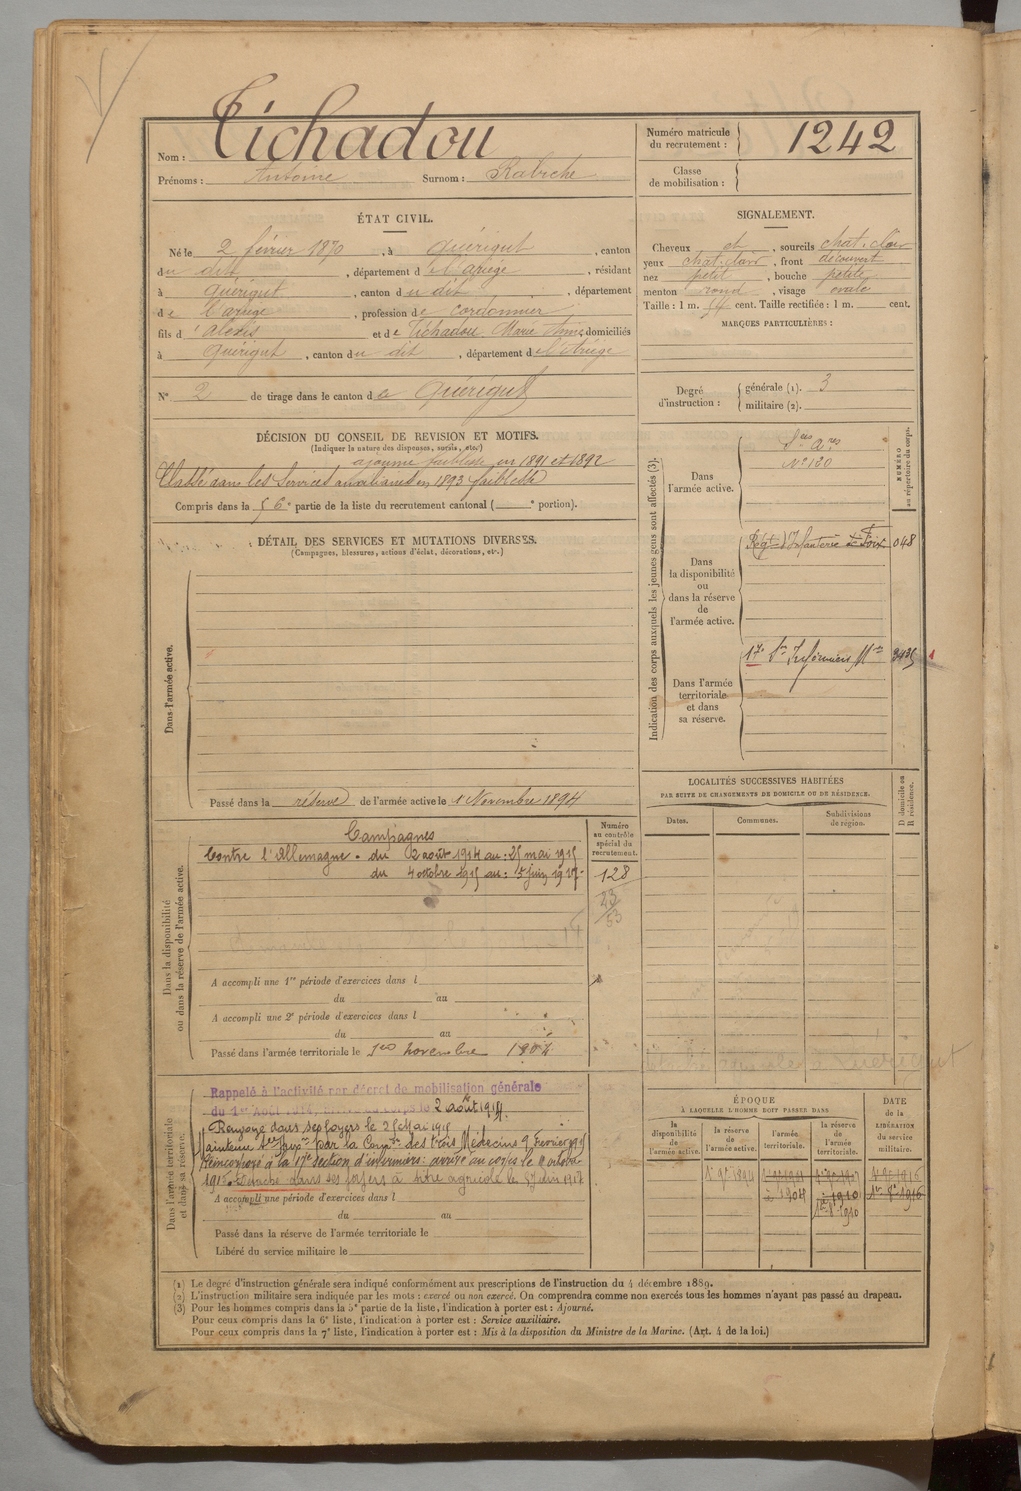 Nom : Tichadou
Prénoms : Antoine Surnom : Rabiche
Numéro matricule du recrutement : 1242
Classe de mobilisation :
ÉTAT CIVIL.
Né le 2 février 1870, à Quérigut, canton
du dit, département de l'ariège, résidant
à Quérigut, canton du dit, département
de l'ariège, profession de cordonnier
fils d'alexis et de Tichadou Marie Anne domiciliés
à Quérigut, canton du dit, département de l'Ariège
N° 2 de tirage dans le canton de Quérigut
SIGNALEMENT.
Cheveux et, sourcils chat. clair
yeux chat. clair, front découvert
nez petit, bouche petite
menton rond, visage ovale
Taille : 1 m. 54 cent. Taille rectifiée : 1 m. cent.
MARQUES PARTICULIÈRES :
Degré d'instruction : générale (1). 3
militaire (2).
DÉCISION DU CONSEIL DE REVISION ET MOTIFS.
(Indiquer la nature des dispenses, sursis, etc.)
ajourné faiblesse en 1891 et 1892
Classé dans les Services auxiliaires en 1893 faiblesse
Compris dans la 6e partie de la liste du recrutement cantonal ( e portion).
DÉTAIL DES SERVICES ET MUTATIONS DIVERSES.
(Campagnes, blessures, actions d'éclat, décorations, etc.)
Dans l'armée active.
Passé dans la réserve de l'armée active le 1 Novembre 1894
Indication des corps auxquels les jeunes gens sont affectés (3).
NUMÉRO au répertoire du corps.
Dans l'armée active.
N° 130
Dans la disponibilité ou dans la réserve de l'armée active.
Régt d'Infanterie de Foix 048
Dans l'armée territoriale et dans sa réserve.
17e Son Infirmiers Mres
LOCALITÉS SUCCESSIVES HABITÉES
PAR SUITE DE CHANGEMENTS DE DOMICILE OU DE RÉSIDENCE.
Dates. Communes. Subdivisions de région. D domicile ou R résidence.
Dans la disponibilité ou dans la réserve de l'armée active.
Numéro au contrôle spécial du recrutement.
128
23
53
Campagnes
Contre l'Allemagne. du 2 août 1914 au : 25 mai 1915
du 4 octobre 1915 au : 15 juin 1917
A accompli une 1re période d'exercices dans l
du au
A accompli une 2e période d'exercices dans l
du au
Passé dans l'armée territoriale le 1er novembre 1904
Dans l'armée territoriale et dans sa réserve.
Rappelé à l'activité par décret de mobilisation générale
du 1er Août 1914, 2 août 1914.
Renvoyé dans ses foyers le 25 Mai 1915
Maintenu par la Comon des trois Médecins 9 Février 1915
Réincorporé à la 17e section d'infirmiers : arrivé au corps le 4 octobre
1915. Détaché dans ses foyers à titre agricole le
A accompli une période d'exercices dans l
du au
Passé dans la réserve de l'armée territoriale le
Libéré du service militaire le
ÉPOQUE
À LAQUELLE L'HOMME DOIT PASSER DANS
la disponibilité de l'armée active. la réserve de l'armée active. l'armée territoriale. la réserve de l'armée territoriale.
DATE de la LIBÉRATION du service militaire.
1er 9bre 1894
1904
1910
1er 8bre 1910
1er 9bre 1916
1er 8bre 1916
(1) Le degré d'instruction générale sera indiqué conformément aux prescriptions de l'instruction du 4 décembre 1889.
(2) L'instruction militaire sera indiquée par les mots : exercé ou non exercé. On comprendra comme non exercés tous les hommes n'ayant pas passé au drapeau.
(3) Pour les hommes compris dans la 5e partie de la liste, l'indication à porter est : Ajourné.
Pour ceux compris dans la 6e liste, l'indication à porter est : Service auxiliaire.
Pour ceux compris dans la 7e liste, l'indication à porter est : Mis à la disposition du Ministre de la Marine. (Art. 4 de la loi.)